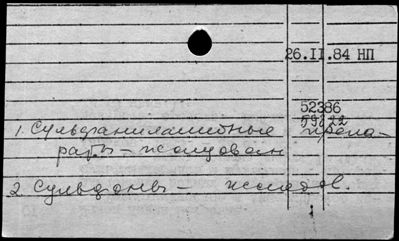 26.II.84 НП
52386
59222
1. Сульфаниламидные препа-
раты – исследован
2. Сульфоны – исследов.